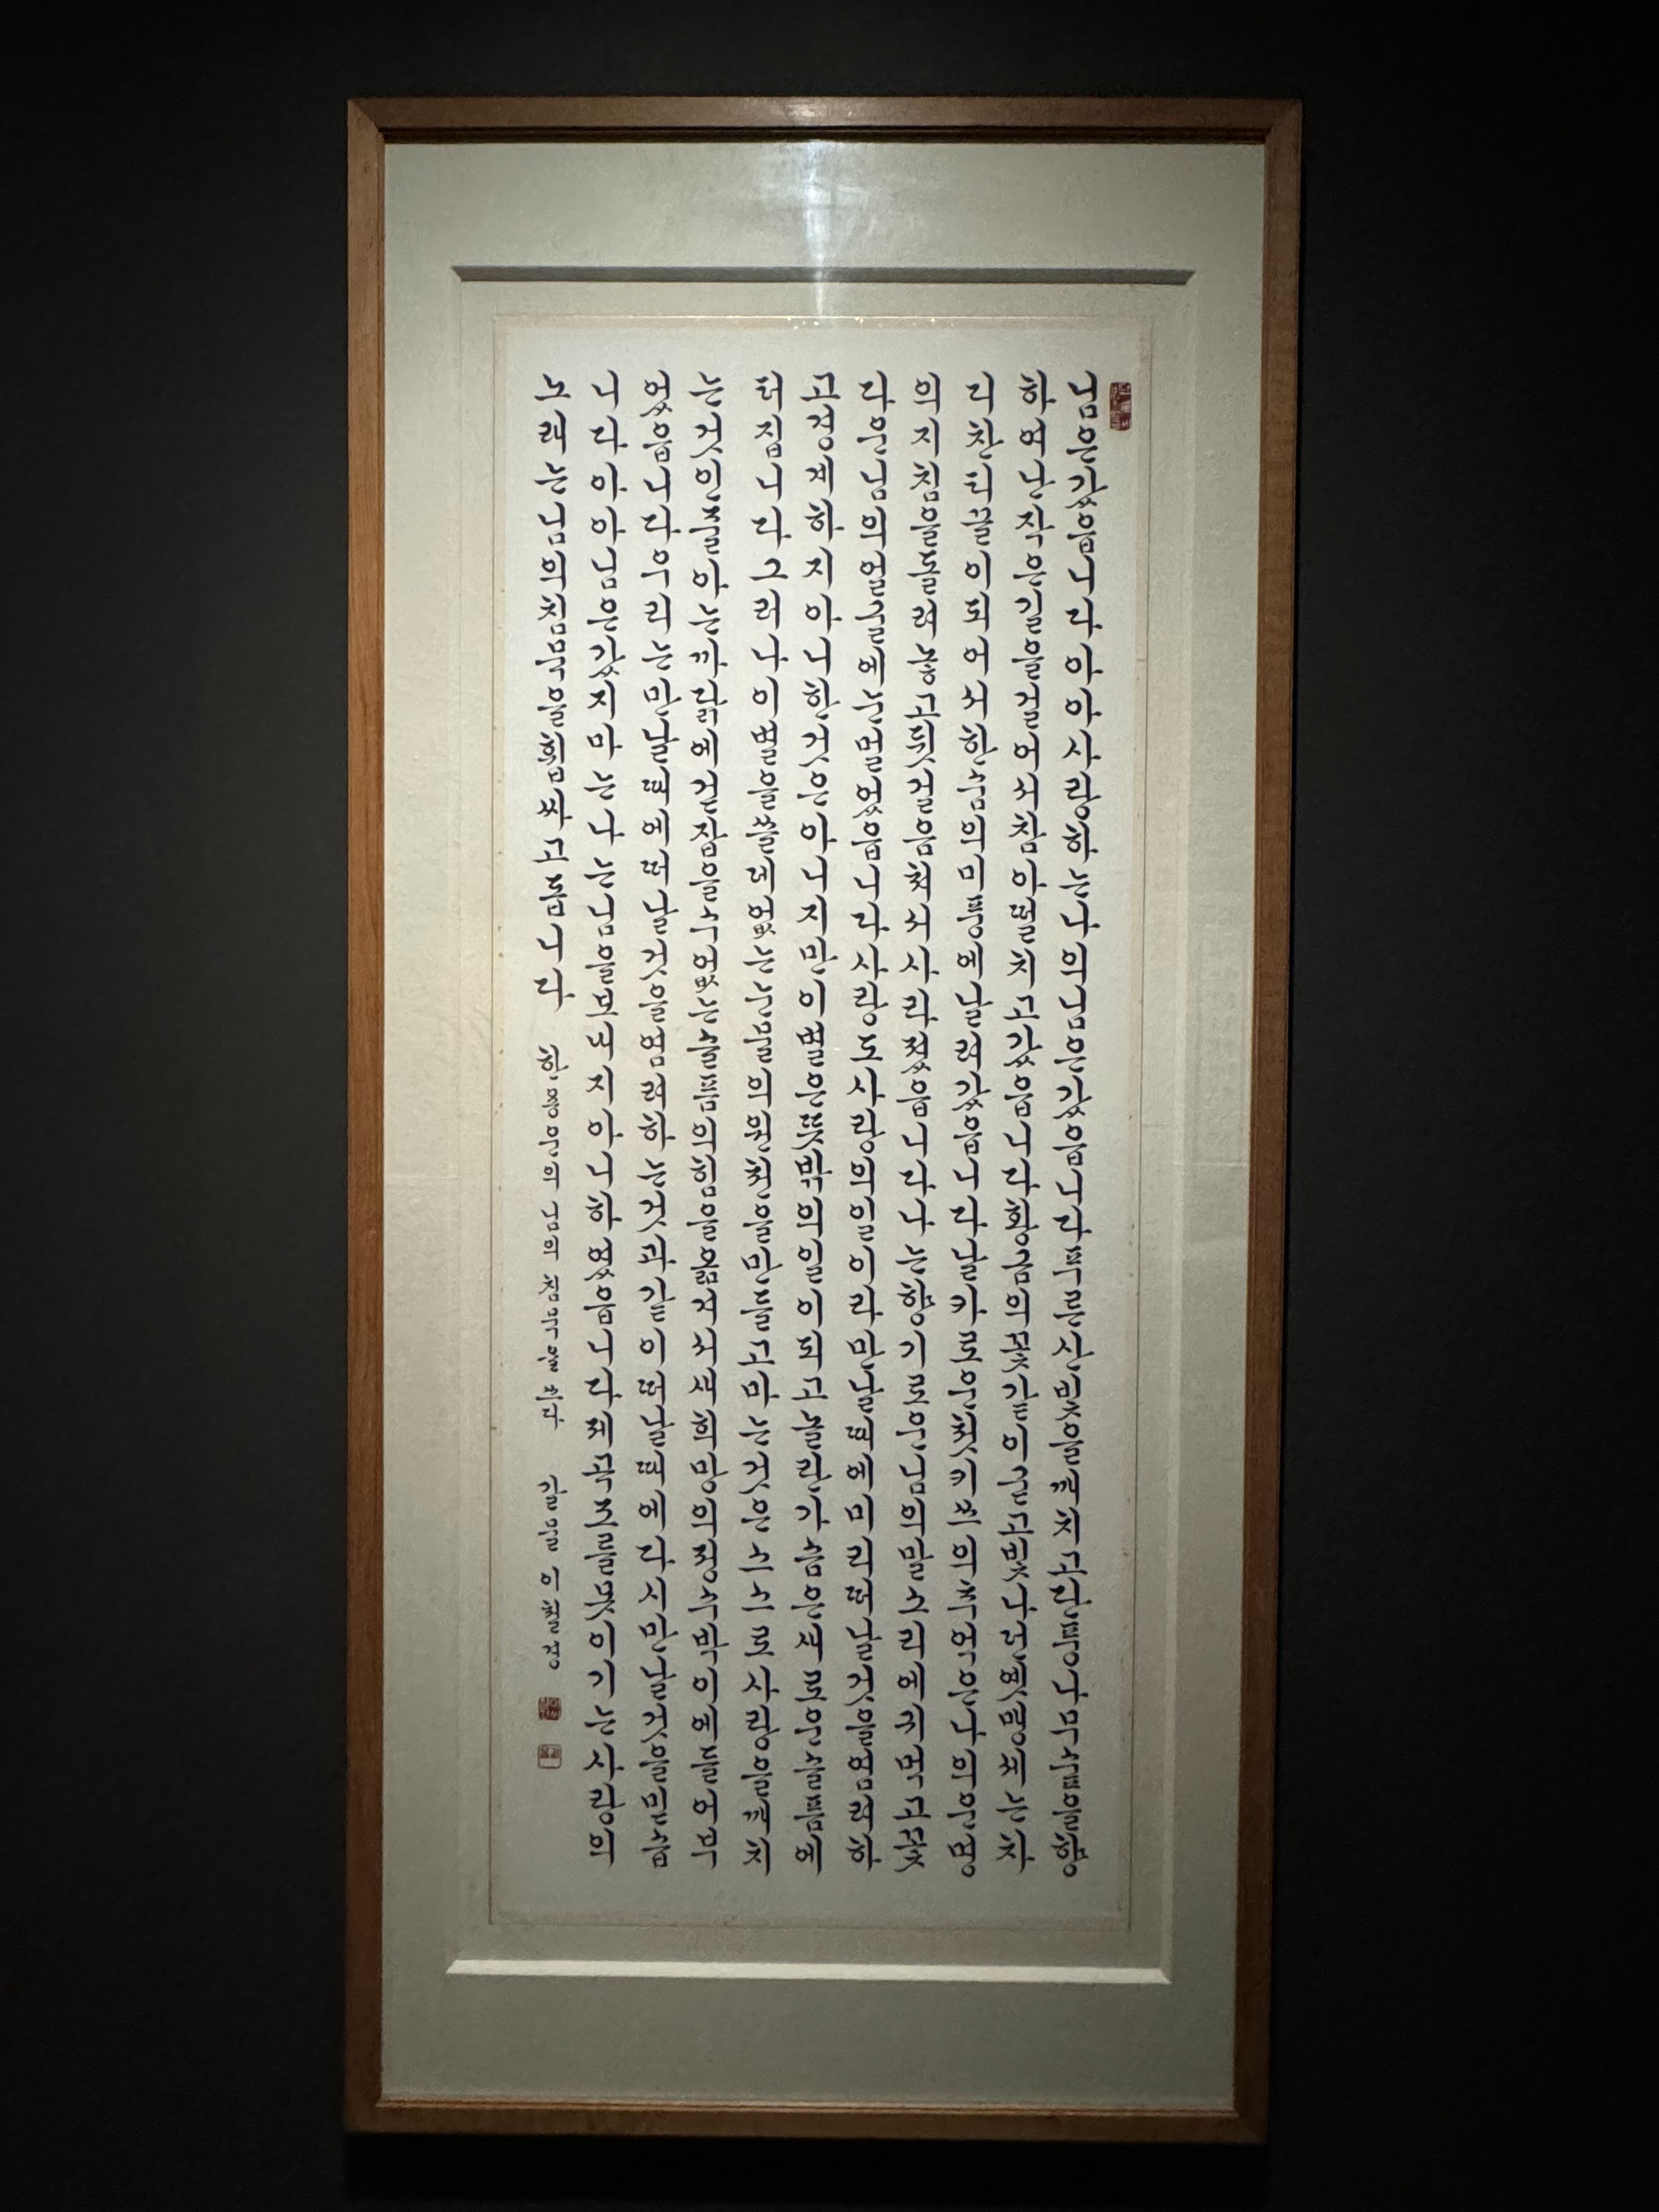 님은갔습니다아아사랑하는나의님은갔습니다푸른산빛을깨치고단풍나무숲을향
하여난작은길을걸어서참아떨치고갔습니다황금의꽃같이굳고빛나던옛맹세는차
디찬티끌이되어서한숨의미풍에날아갔습니다날카로운첫키스의추억은나의운명
의지침을돌려놓고뒷걸음쳐서사라졌습니다나는향기로운님의말소리에귀먹고꽃
다운님의얼굴에눈멀었습니다사랑도사람의일이라만날때에미리떠날것을염려하
고경계하지아니한것은아니지만이별은뜻밖의일이되고놀란가슴은새로운슬픔에
터집니다그러나이별을쓸데없는눈물의원천을만들고마는것은스스로사랑을깨치
는것인줄아는까닭에걷잡을수없는슬픔의힘을옮겨서새희망의정수박이에들어부
었습니다우리는만날때에떠날것을염려하는것과같이떠날때에다시만날것을믿습
니다아아님은갔지마는나는님을보내지아니하였습니다제곡조를못이기는사랑의
노래는님의침묵을휩싸고돕니다 한용운의 님의 침묵을 쓰다 갈물 이철경